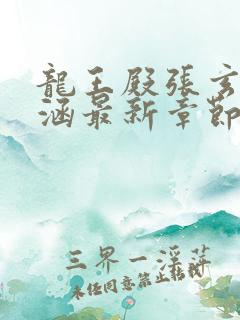 龍王殿張玄
涵最新章節
三界一浮萍
未經同意禁止轉載